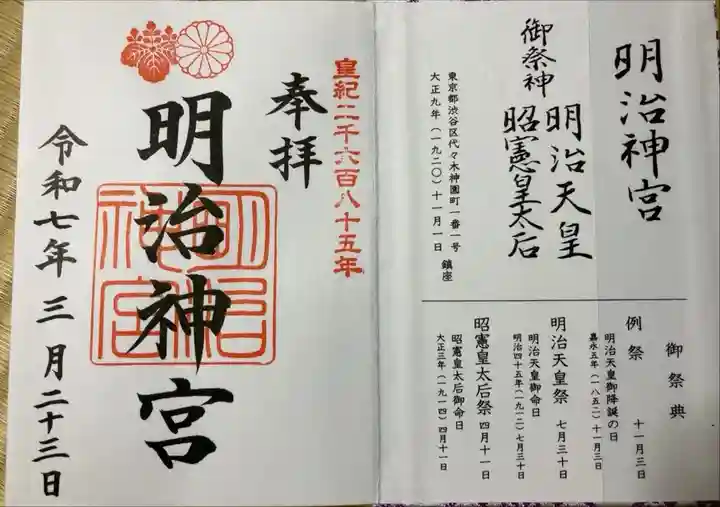 明治神宮
御祭神
明治天皇
昭憲皇太后
東京都渋谷区代々木神園町一番一号
大正九年(一九二〇)十一月一日 鎮座
御祭典
例祭 十一月三日
明治天皇御降誕の日
嘉永五年(一八五二)十一月三日
明治天皇祭 七月三十日
明治天皇御命日
明治四十五年(一九一二)七月三十日
昭憲皇太后祭 四月十一日
昭憲皇太后御命日
大正三年(一九一四)四月十一日
皇紀二千六百八十五年
奉拝
明治神宮
明治
神宮
令和七年 三月二十三日